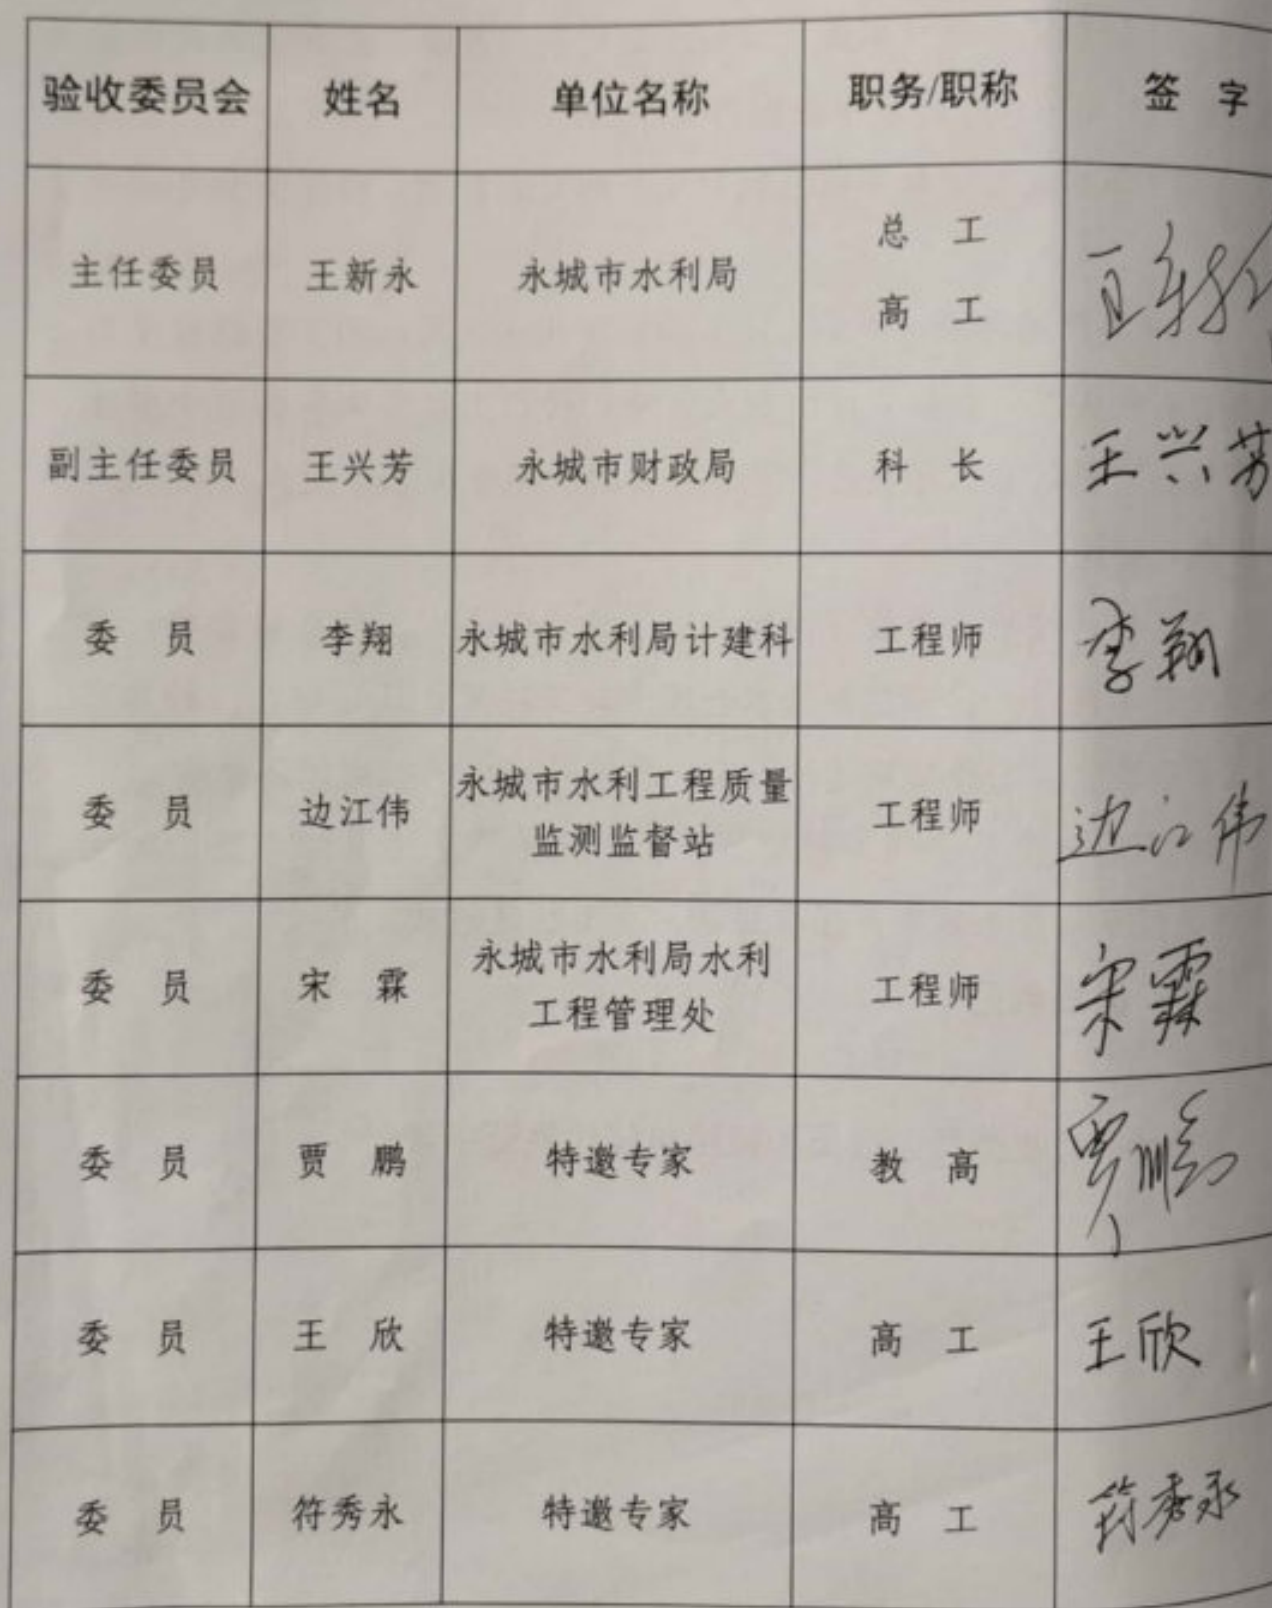 验收委员会 姓名 单位名称 职务/职称 签 字
主任委员 王新永 永城市水利局 总 工
高 工
副主任委员 王兴芳 永城市财政局 科 长 王兴芳
委 员 李翔 永城市水利局计建科 工程师 李翔
委 员 边江伟 永城市水利工程质量
监测监督站 工程师 边江伟
委 员 宋 霖 永城市水利局水利
工程管理处 工程师 宋霖
委 员 贾 鹏 特邀专家 教 高 贾鹏
委 员 王 欣 特邀专家 高 工 王欣
委 员 符秀永 特邀专家 高 工 符秀永